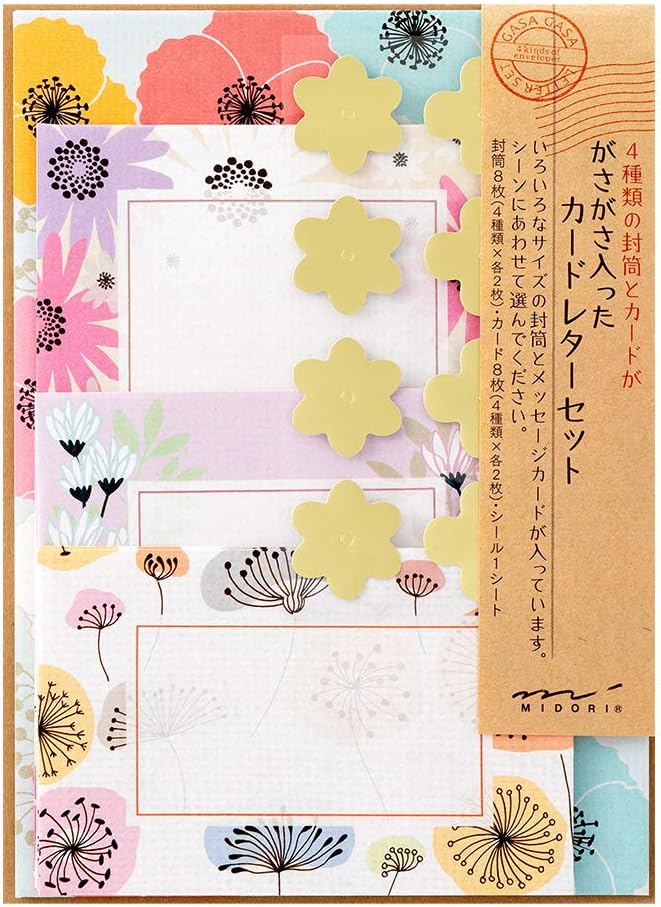 GASA GASA
4 kinds of
envelopes
LETTER SET
4種類の封筒とカードが
がさがさ入った
カードレターセット
いろいろなサイズの封筒とメッセージカードが入っています。
シーンにあわせて選んでください。
封筒8枚(4種類×各2枚)・カード8枚(4種類×各2枚)・シール1シート
MIDORI®